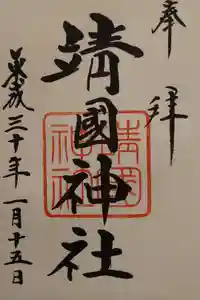 奉拝
靖國神社
平成三十年一月十五日
靖國神社